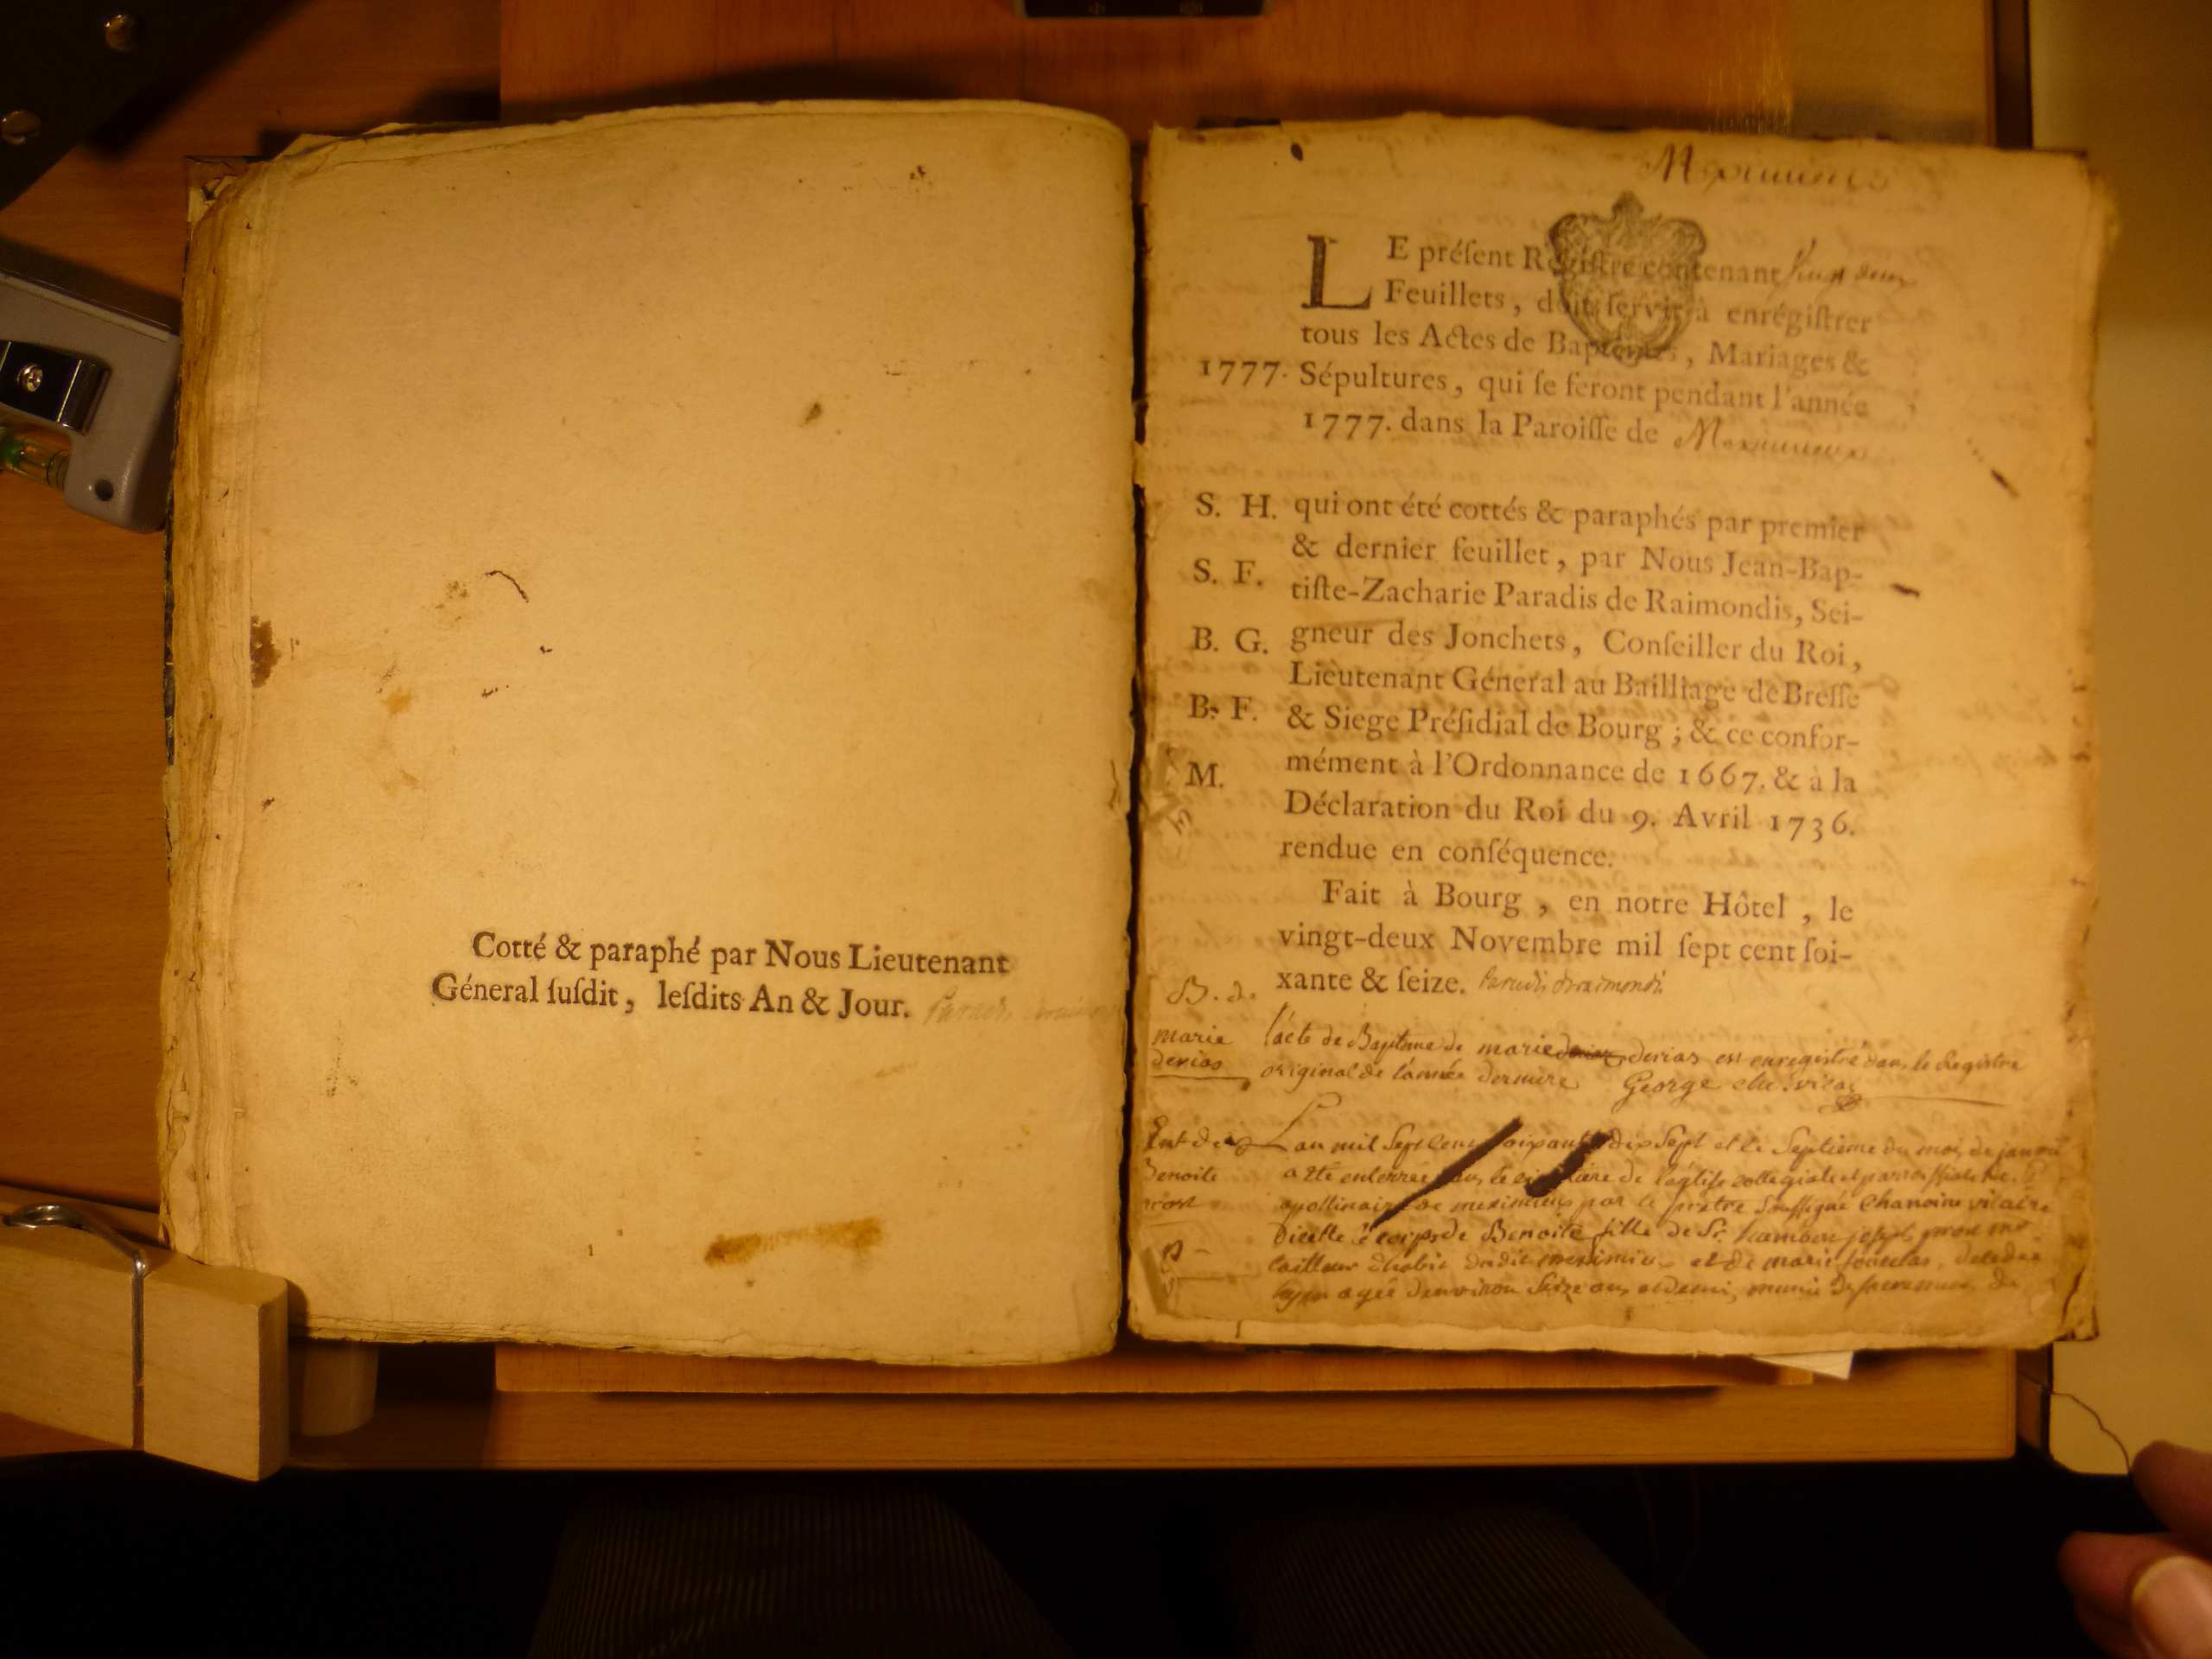 Cotté & paraphé par Nous Lieutenant
Géneral ſuſdit, leſdits An & Jour.
Meximieux
LE préſent Régiſtre contenant vingt deux
Feuillets, doit ſervir à enrégiſtrer
tous les Actes de Baptêmes, Mariages &
1777. Sépultures, qui ſe feront pendant l'année
1777. dans la Paroiſſe de Meximieux
S. H. qui ont été cottés & paraphés par premier
& dernier feuillet, par Nous Jean-Bap-
S. F. tiſte-Zacharie Paradis de Raimondis, Sei-
B. G. gneur des Jonchets, Conſeiller du Roi,
Lieutenant Géneral au Bailliage de Breſſe
B. F. & Siege Préſidial de Bourg ; & ce confor-
M. mément à l'Ordonnance de 1667. & à la
Déclaration du Roi du 9. Avril 1736.
rendue en conſéquence.
Fait à Bourg , en notre Hôtel , le
vingt-deux Novembre mil ſept cent ſoi-
xante & ſeize. Paradis deraimondis
B. d.
marie
derias
l'acte de Baptême de marie derias est enregistré dans le Registre
original de l'année derniere George
Ent de
Benoite
prost
L'an mil Sept cent soixante dix Sept et le Septieme du mois de janvier
a été enterrée dans le cimetiere de l'église collegiale et parroissiale de St
apollinaire de meximieux par le prêtre Soussigné Chanoine vicaire
dicelle le corps de Benoite fille de Sr. joseph prost me
tailleur d'habit dudit meximieux et de marie
agée d'environ Seize ans et demi, munie des sacremens de